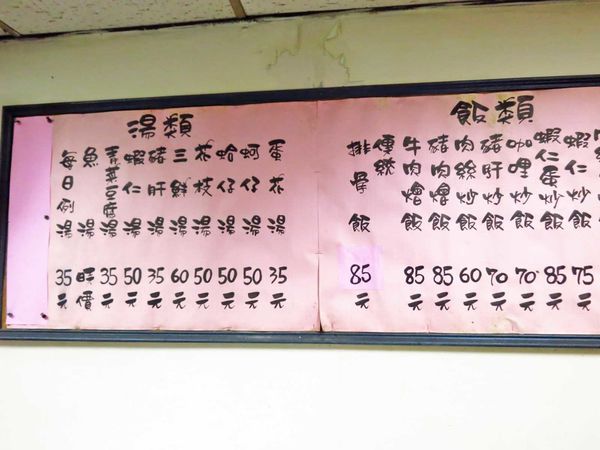 湯類
蛋花湯 35元
蚵仔湯 50元
蛤仔湯 50元
花枝湯 50元
三鮮湯 60元
豬肝湯 35元
蝦仁湯 50元
青菜豆腐湯 35元
魚湯 時價
每日例湯 35元
飯類
蝦仁炒飯 75元
蝦仁蛋炒飯 85元
咖哩炒飯 70元
豬肝炒飯 70元
肉絲炒飯 60元
豬肉燴飯 85元
牛肉燴飯 85元
傳統
排骨飯 85元